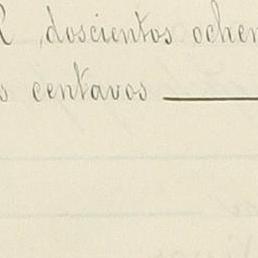 doscientos ochen
s centavos